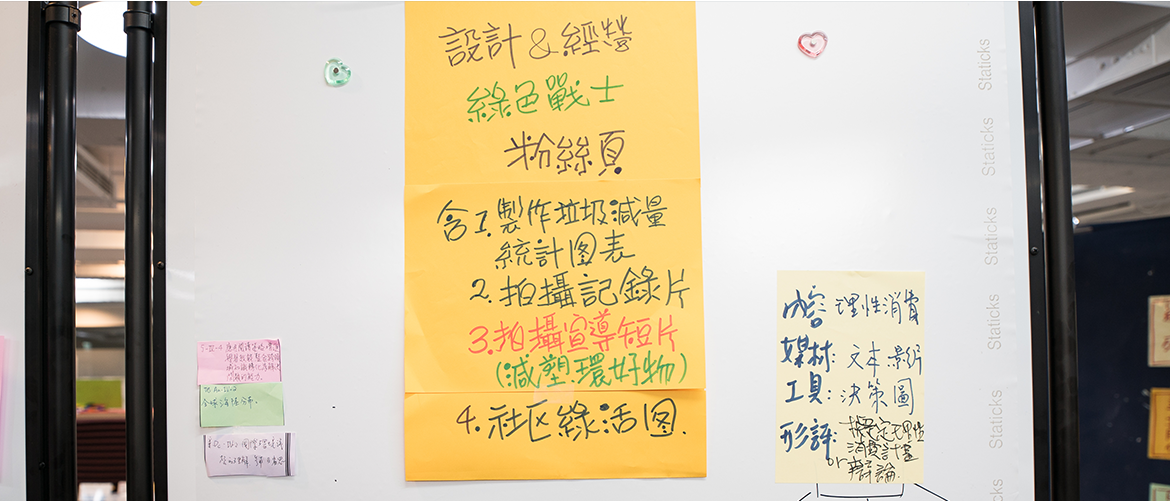 設計&經營
綠色戰士
粉絲頁
含1.製作垃圾減量
統計图表
2.拍攝記錄片
3.拍攝宣導短片
(減塑環好物)
4.社区綠活图.
內容: 理性消費
媒材: 文本 影片
工具: 決策圖
形評:
消費計畫
or 辯論
全球海廢分布。
Staticks
Staticks
Staticks
Staticks
Staticks
Staticks